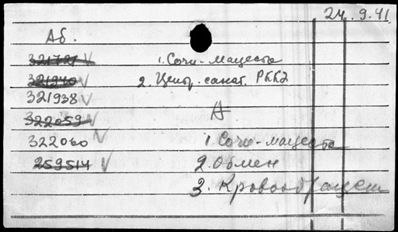 24.9.41
Аб.
321727 V
321940 V
321938 V
322059 V
322060 V
259514 V
1. Сочи-мацеста
2. Центр. санат. РККА
А
1. Сочи-мацеста
2. Обмен
3. Кровообращен